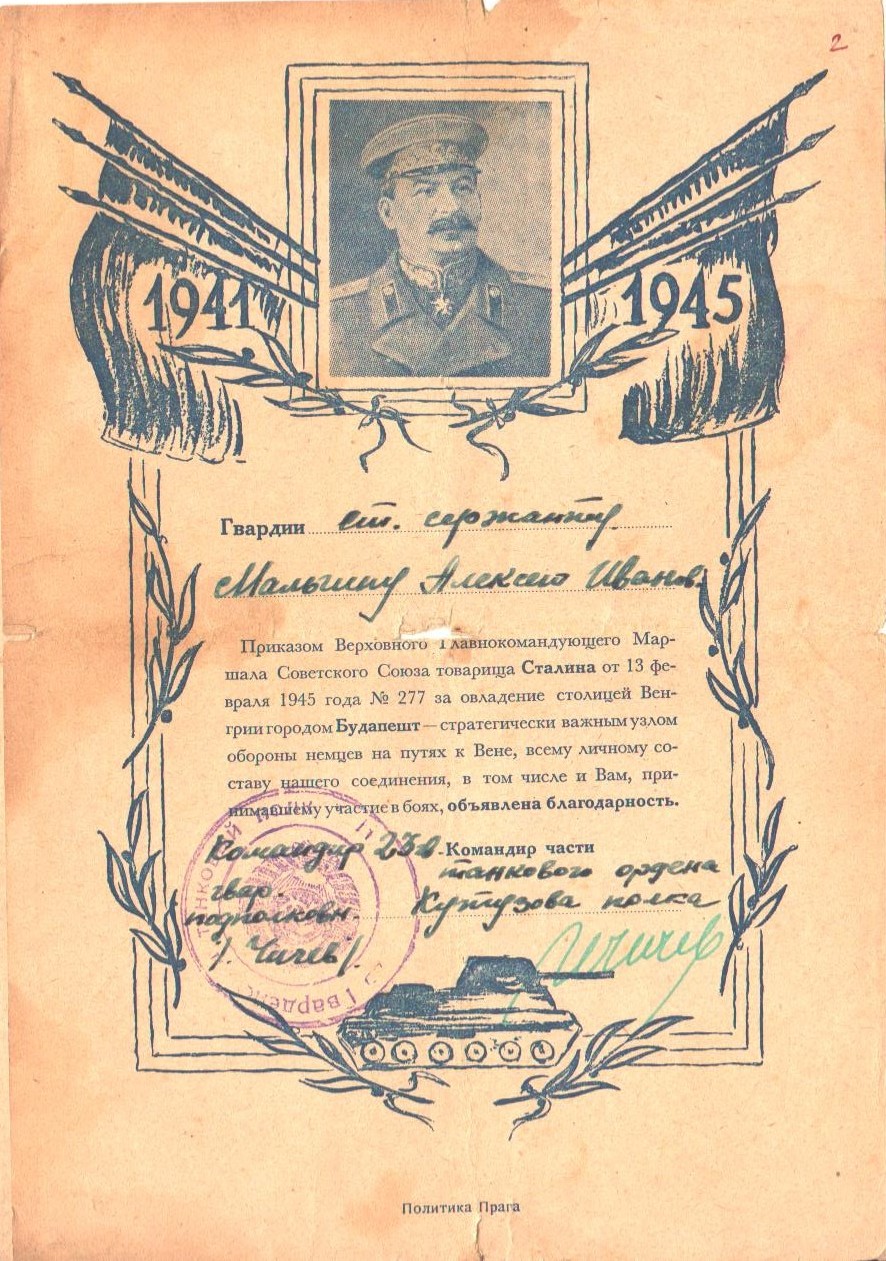 2
1941 1945
Гвардии ст. сержанту
Малыгину Алексею Иванов.
Приказом Верховного Главнокомандующего Мар-
шала Советского Союза товарища Сталина от 13 фе-
враля 1945 года № 277 за овладение столицей Вен-
грии городом Будапешт — стратегически важным узлом
обороны немцев на путях к Вене, всему личному со-
ставу нашего соединения, в том числе и Вам, при-
нимавшему участие в боях, объявлена благодарность.
Командир 23 Командир части
танкового ордена
гвар.
подполковн. Кутузова полка
/. Чичев/.
танковой полк
Гвардей
Политика Прага